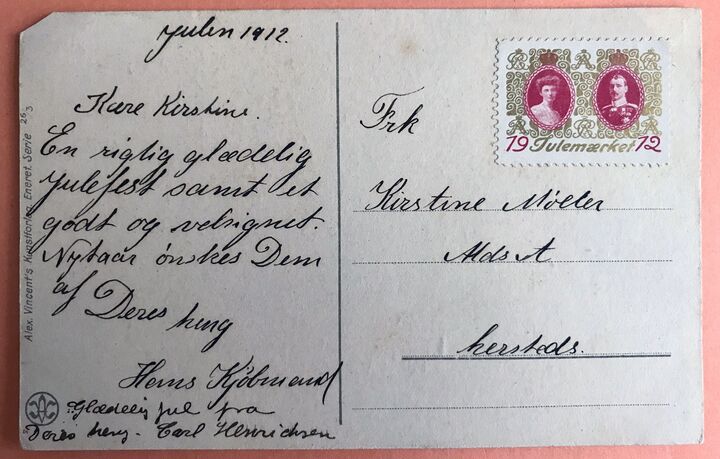 Julen 1912.
Kære Kirstine.
En rigtig glædelig
Julefest samt et
godt og velsignet.
Nytaar ønskes Dem
af Deres heng
Hans Kjøbmand
Glædelig jul fra
Deres heng. Carl Henrichsen
Alex. Vincent's Kunstforlag, Eneret. Serie 26/3
19 Julemærket 12
Frk
Kirstine Møller
hersteds.